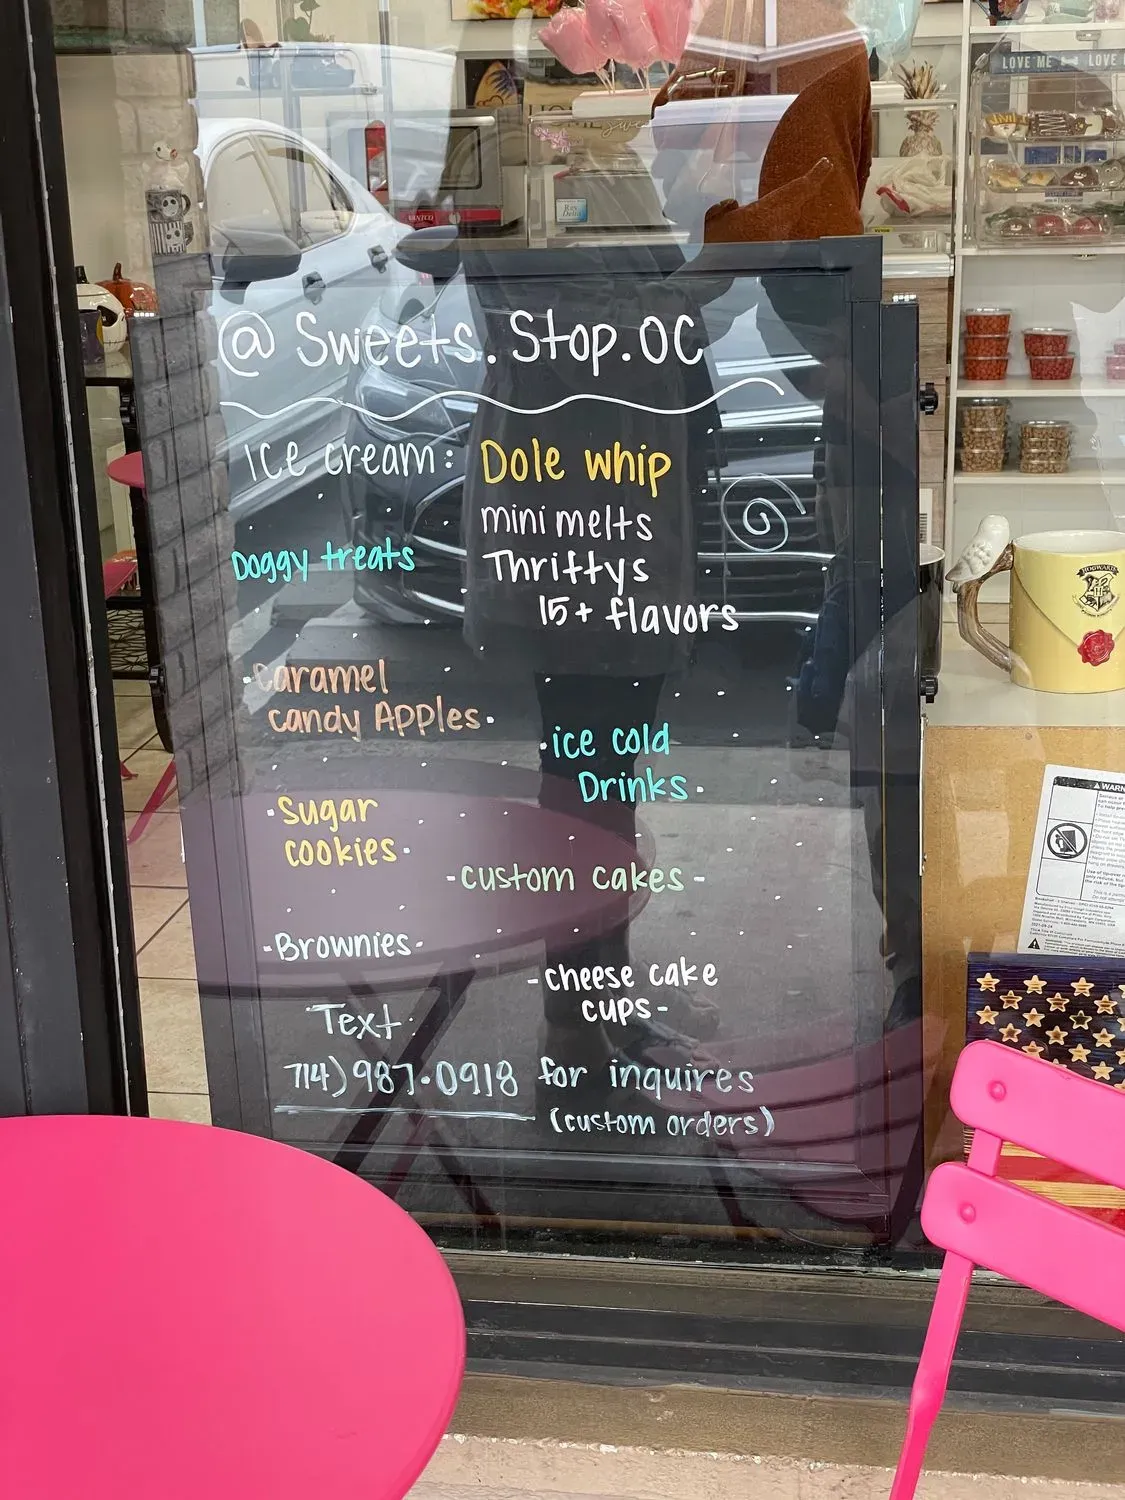 LOVE ME
LOVE
VANTCO
Rae
Dunn
@ Sweets.Stop.OC
Ice cream: Dole whip
mini melts
Doggy treats
Thriftys
15+ flavors
HOGWARTS
caramel
candy Apples.
.ice cold
Drinks.
.Sugar
cookies.
-custom cakes-
-Brownies-
-cheese cake
cups-
Text:
714)987.0918 for inquires
(custom orders)
WARN